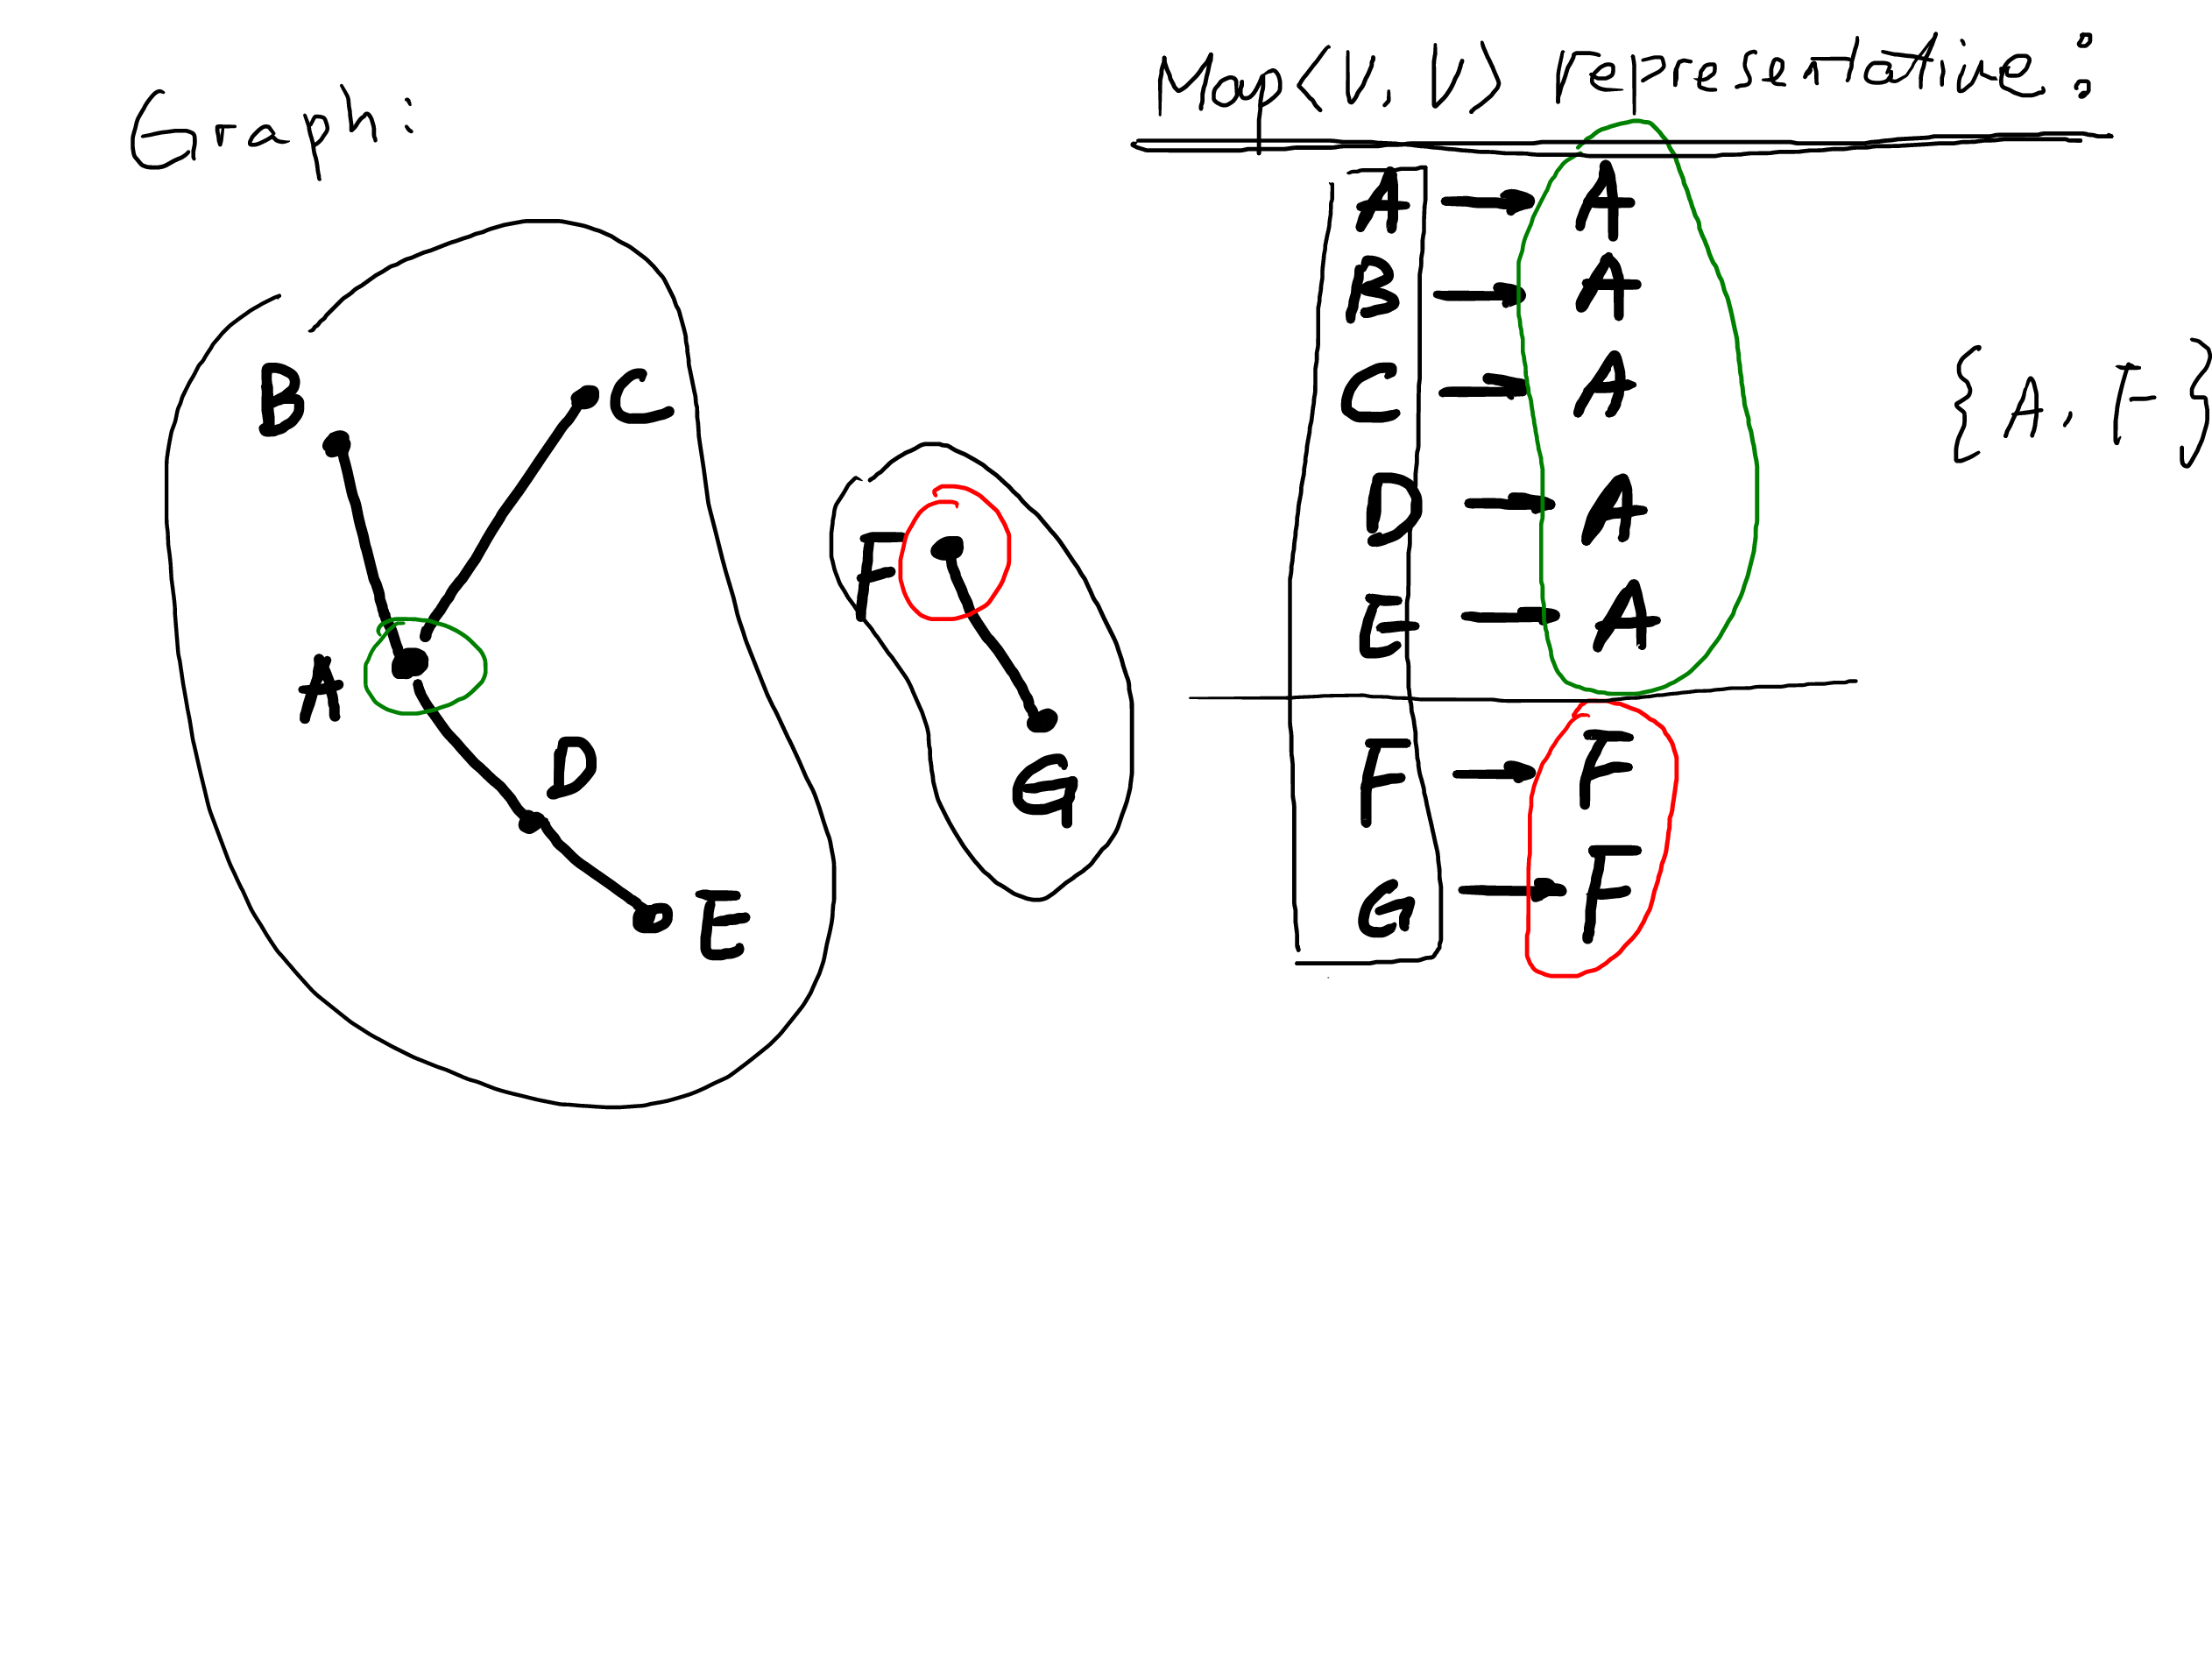 Graph:
B
C
A
D
E
F
G
Map<V, V> representative:
A → A
B → A
C → A
D → A
E → A
F → F
G → F
{A, F}